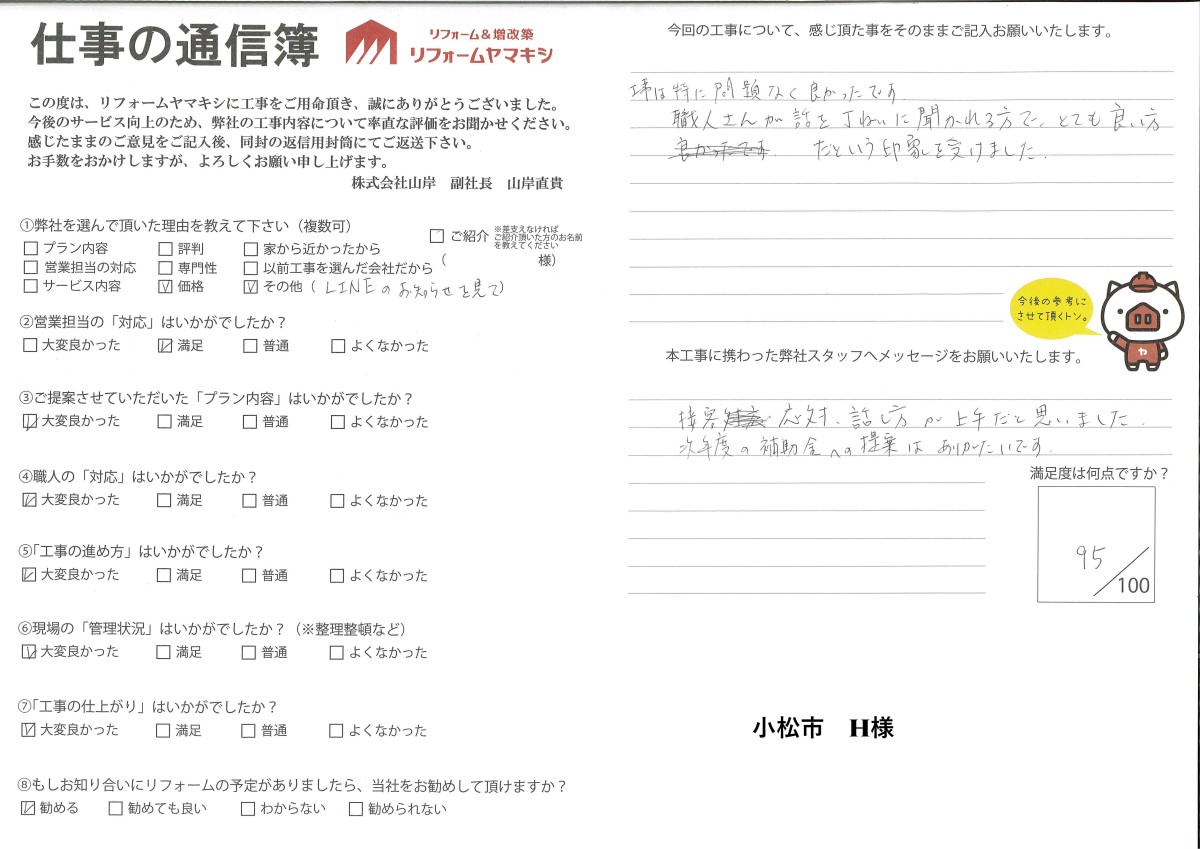 仕事の通信簿
リフォーム&増改築
リフォームヤマキシ
この度は、リフォームヤマキシに工事をご用命頂き、誠にありがとうございました。
今後のサービス向上のため、弊社の工事内容について率直な評価をお聞かせください。
感じたままのご意見をご記入後、同封の返信用封筒にてご返送下さい。
お手数をおかけしますが、よろしくお願い申し上げます。
株式会社山岸 副社長 山岸直貴
①弊社を選んで頂いた理由を教えて下さい（複数可）
□プラン内容 □評判 □家から近かったから
□営業担当の対応 □専門性 □以前工事を選んだ会社だから
□サービス内容 ☑価格 ☑その他（LINEのお知らせを見て）
□ご紹介 ※差支えなければ
ご紹介頂いた方のお名前
を教えてください
（ 様）
②営業担当の「対応」はいかがでしたか？
□大変良かった ☑満足 □普通 □よくなかった
③ご提案させていただいた「プラン内容」はいかがでしたか？
☑大変良かった □満足 □普通 □よくなかった
④職人の「対応」はいかがでしたか？
☑大変良かった □満足 □普通 □よくなかった
⑤「工事の進め方」はいかがでしたか？
☑大変良かった □満足 □普通 □よくなかった
⑥現場の「管理状況」はいかがでしたか？（※整理整頓など）
☑大変良かった □満足 □普通 □よくなかった
⑦「工事の仕上がり」はいかがでしたか？
☑大変良かった □満足 □普通 □よくなかった
⑧もしお知り合いにリフォームの予定がありましたら、当社をお勧めして頂けますか？
☑勧める □勧めても良い □わからない □勧められない
今回の工事について、感じ頂た事をそのままご記入お願いいたします。
工事は特に問題なく良かったです
職人さんが話を丁ねいに聞かれる方で、とても良い方
良かったです だという印象を受けました.
今後の参考に
させて頂くトン。
ヤ
本工事に携わった弊社スタッフへメッセージをお願いいたします。
接客 応対、話し方が上手だと思いました.
次年度の補助金への提案はありがたいです.
満足度は何点ですか？
95/100
小松市 H様